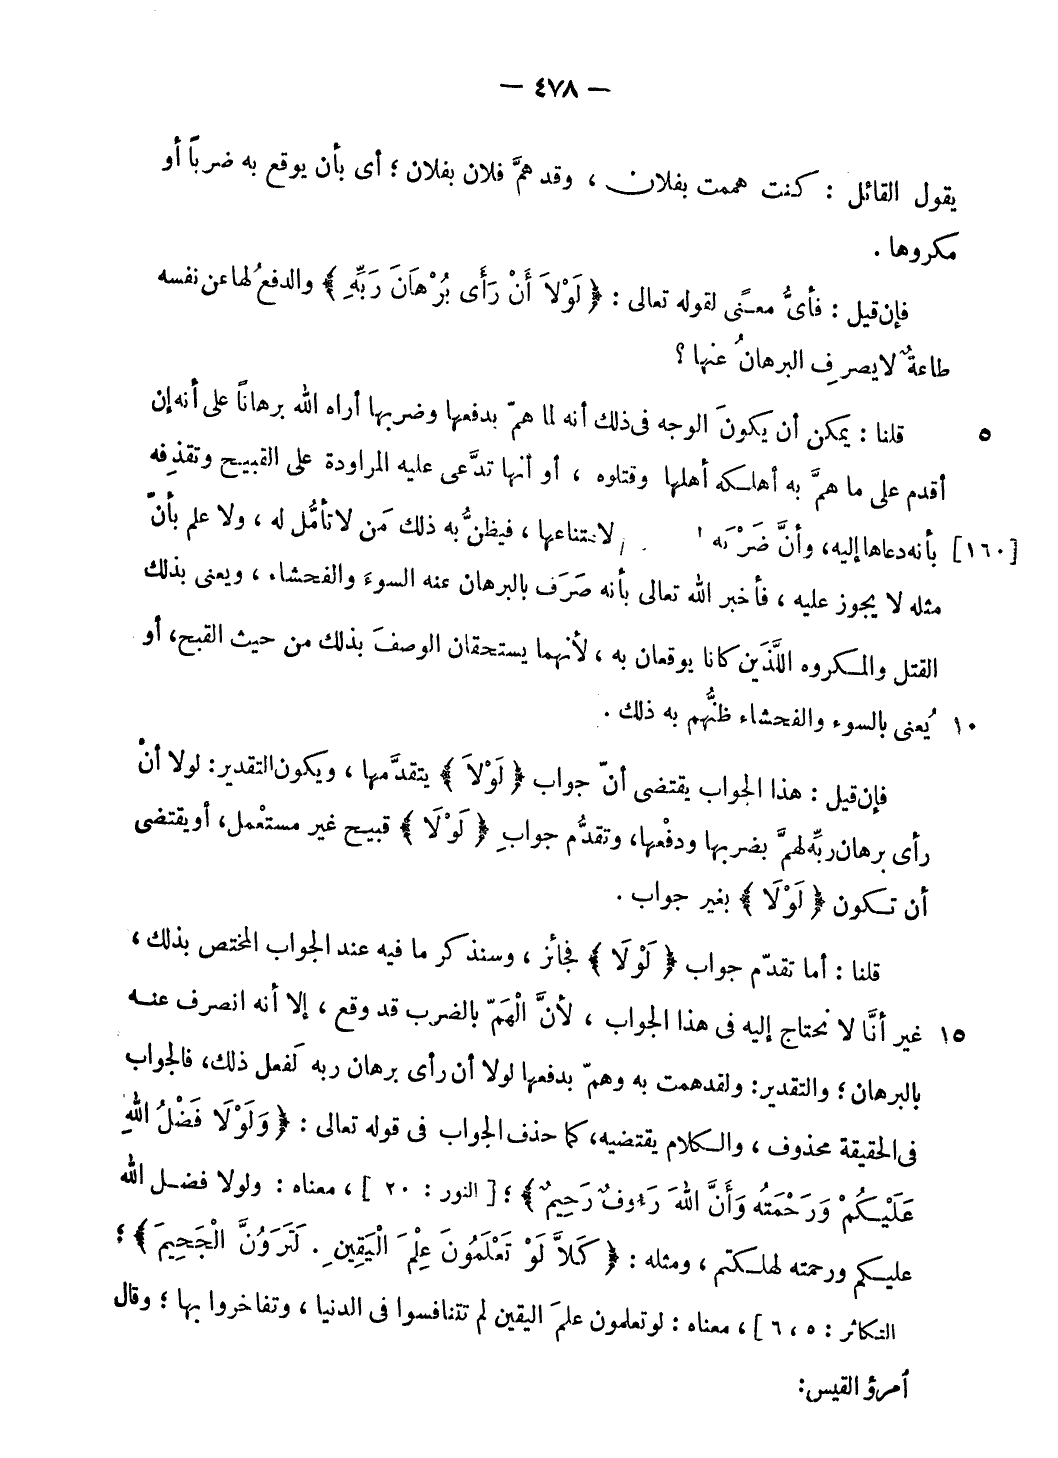 — ٤٧٨ —
يقول القائل : كنت هممت بفلان ، وقد همَّ فلان بفلان ؛ أى بأن يوقع به ضرباً أو
مكروها .
فإن قيل : فأىُّ معنًى لقوله تعالى : ﴿ لَوْلاَ أَنْ رَأَى بُرْهَانَ رَبِّهِ ﴾ والدفعُ لها عن نفسه
طاعةٌ لا يصرِف البرهانُ عنها ؟
٥ قلنا : يمكن أن يكونَ الوجه فى ذلك أنه لما همّ بدفعها وضربها أراه الله برهاناً على أنه إن
أقدم على ما همَّ به أهلكه أهلها وقتلوه ، أو أنها تدَّعى عليه المراودة على القبيح وتقذِفه
[١٦٠] بأنه دعاها إليه، وأنَّ ضَرْبَه لامتناعها ، فيظنُّ به ذلك مَن لا تأمُّل له ، ولا علم بأنّ
مثله لا يجوز عليه ، فأخبر الله تعالى بأنه صَرَف بالبرهان عنه السوءَ والفحشاء ، ويعنى بذلك
القتل والمكروه اللَّذَين كانا يوقعان به ، لأنهما يستحقان الوصفَ بذلك من حيث القبح، أو
١٠ يُعنى بالسوء والفحشاء ظنُّهم به ذلك .
فإن قيل : هذا الجواب يقتضى أنّ جواب ﴿ لَوْلاَ ﴾ يتقدَّمها ، ويكون التقدير: لولا أنْ
رأى برهان ربِّه لهمَّ بضربها ودفْعها، وتقدُّم جوابِ ﴿ لَوْلَا ﴾ قبيح غير مستعْمل، أو يقتضى
أن تكون ﴿ لَوْلَا ﴾ بغير جواب .
قلنا : أما تقدّم جواب ﴿ لَوْلَا ﴾ فجائز ، وسنذكر ما فيه عند الجواب المختص بذلك ،
١٥ غير أنَّا لا نحتاج إليه فى هذا الجواب ، لأنَّ الْهَمّ بالضرب قد وقع ، إلا أنه انصرف عنه
بالبرهان ؛ والتقدير: ولقد همت به وهمّ بدفعها لولا أن رأى برهان ربه لَفعل ذلك، فالجواب
فى الحقيقة محذوف ، والكلام يقتضيه، كما حذف الجواب فى قوله تعالى : ﴿ وَلَوْلَا فَضْلُ اللهِ
عَلَيْكُمْ وَرَحْمَتُه وَأَنَّ اللهَ رَءوفٌ رَحِيمٌ ﴾ ؛ [ النور : ٢٠ ] ، معناه : ولولا فضل الله
عليكم ورحمته لهلكتم ، ومثله : ﴿ كَلاَّ لَوْ تَعْلَمُونَ عِلْمَ الْيَقِينِ . لَتَرَوُنَّ الْجَحِيمَ ﴾ ؛
التكاثر : ٥ ، ٦ ] ، معناه : لو تعلمون علمَ اليقين لم تتنافسوا فى الدنيا ، وتفاخروا بها ؛ وقال
أمرؤ القيس: